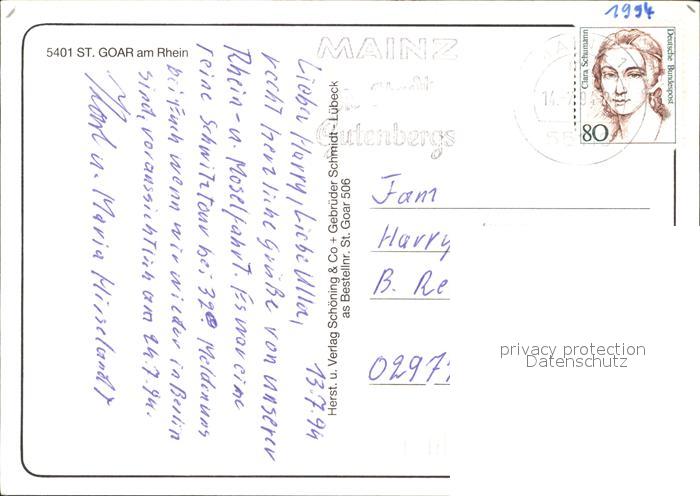 1994
5401 ST. GOAR am Rhein
MAINZ
Gutenbergs
Clara Schumann
Deutsche Bundespost
80
Herst. u. Verlag Schöning & Co + Gebrüder Schmidt - Lübeck
as Bestellnr. St. Goar 506
13.7.94
Lieber Harry, Liebe Ulla,
recht herzliche Grüße von unserer
Rhein- u. Moselfahrt. Es war eine
reine Schwitztour bei 37° Meldung
bei Euch wenn wir wieder in Berlin
sind, voraussichtlich am 24.7.94.
u. Maria
Fam
Harry
B. Re
0297
privacy protection
Datenschutz